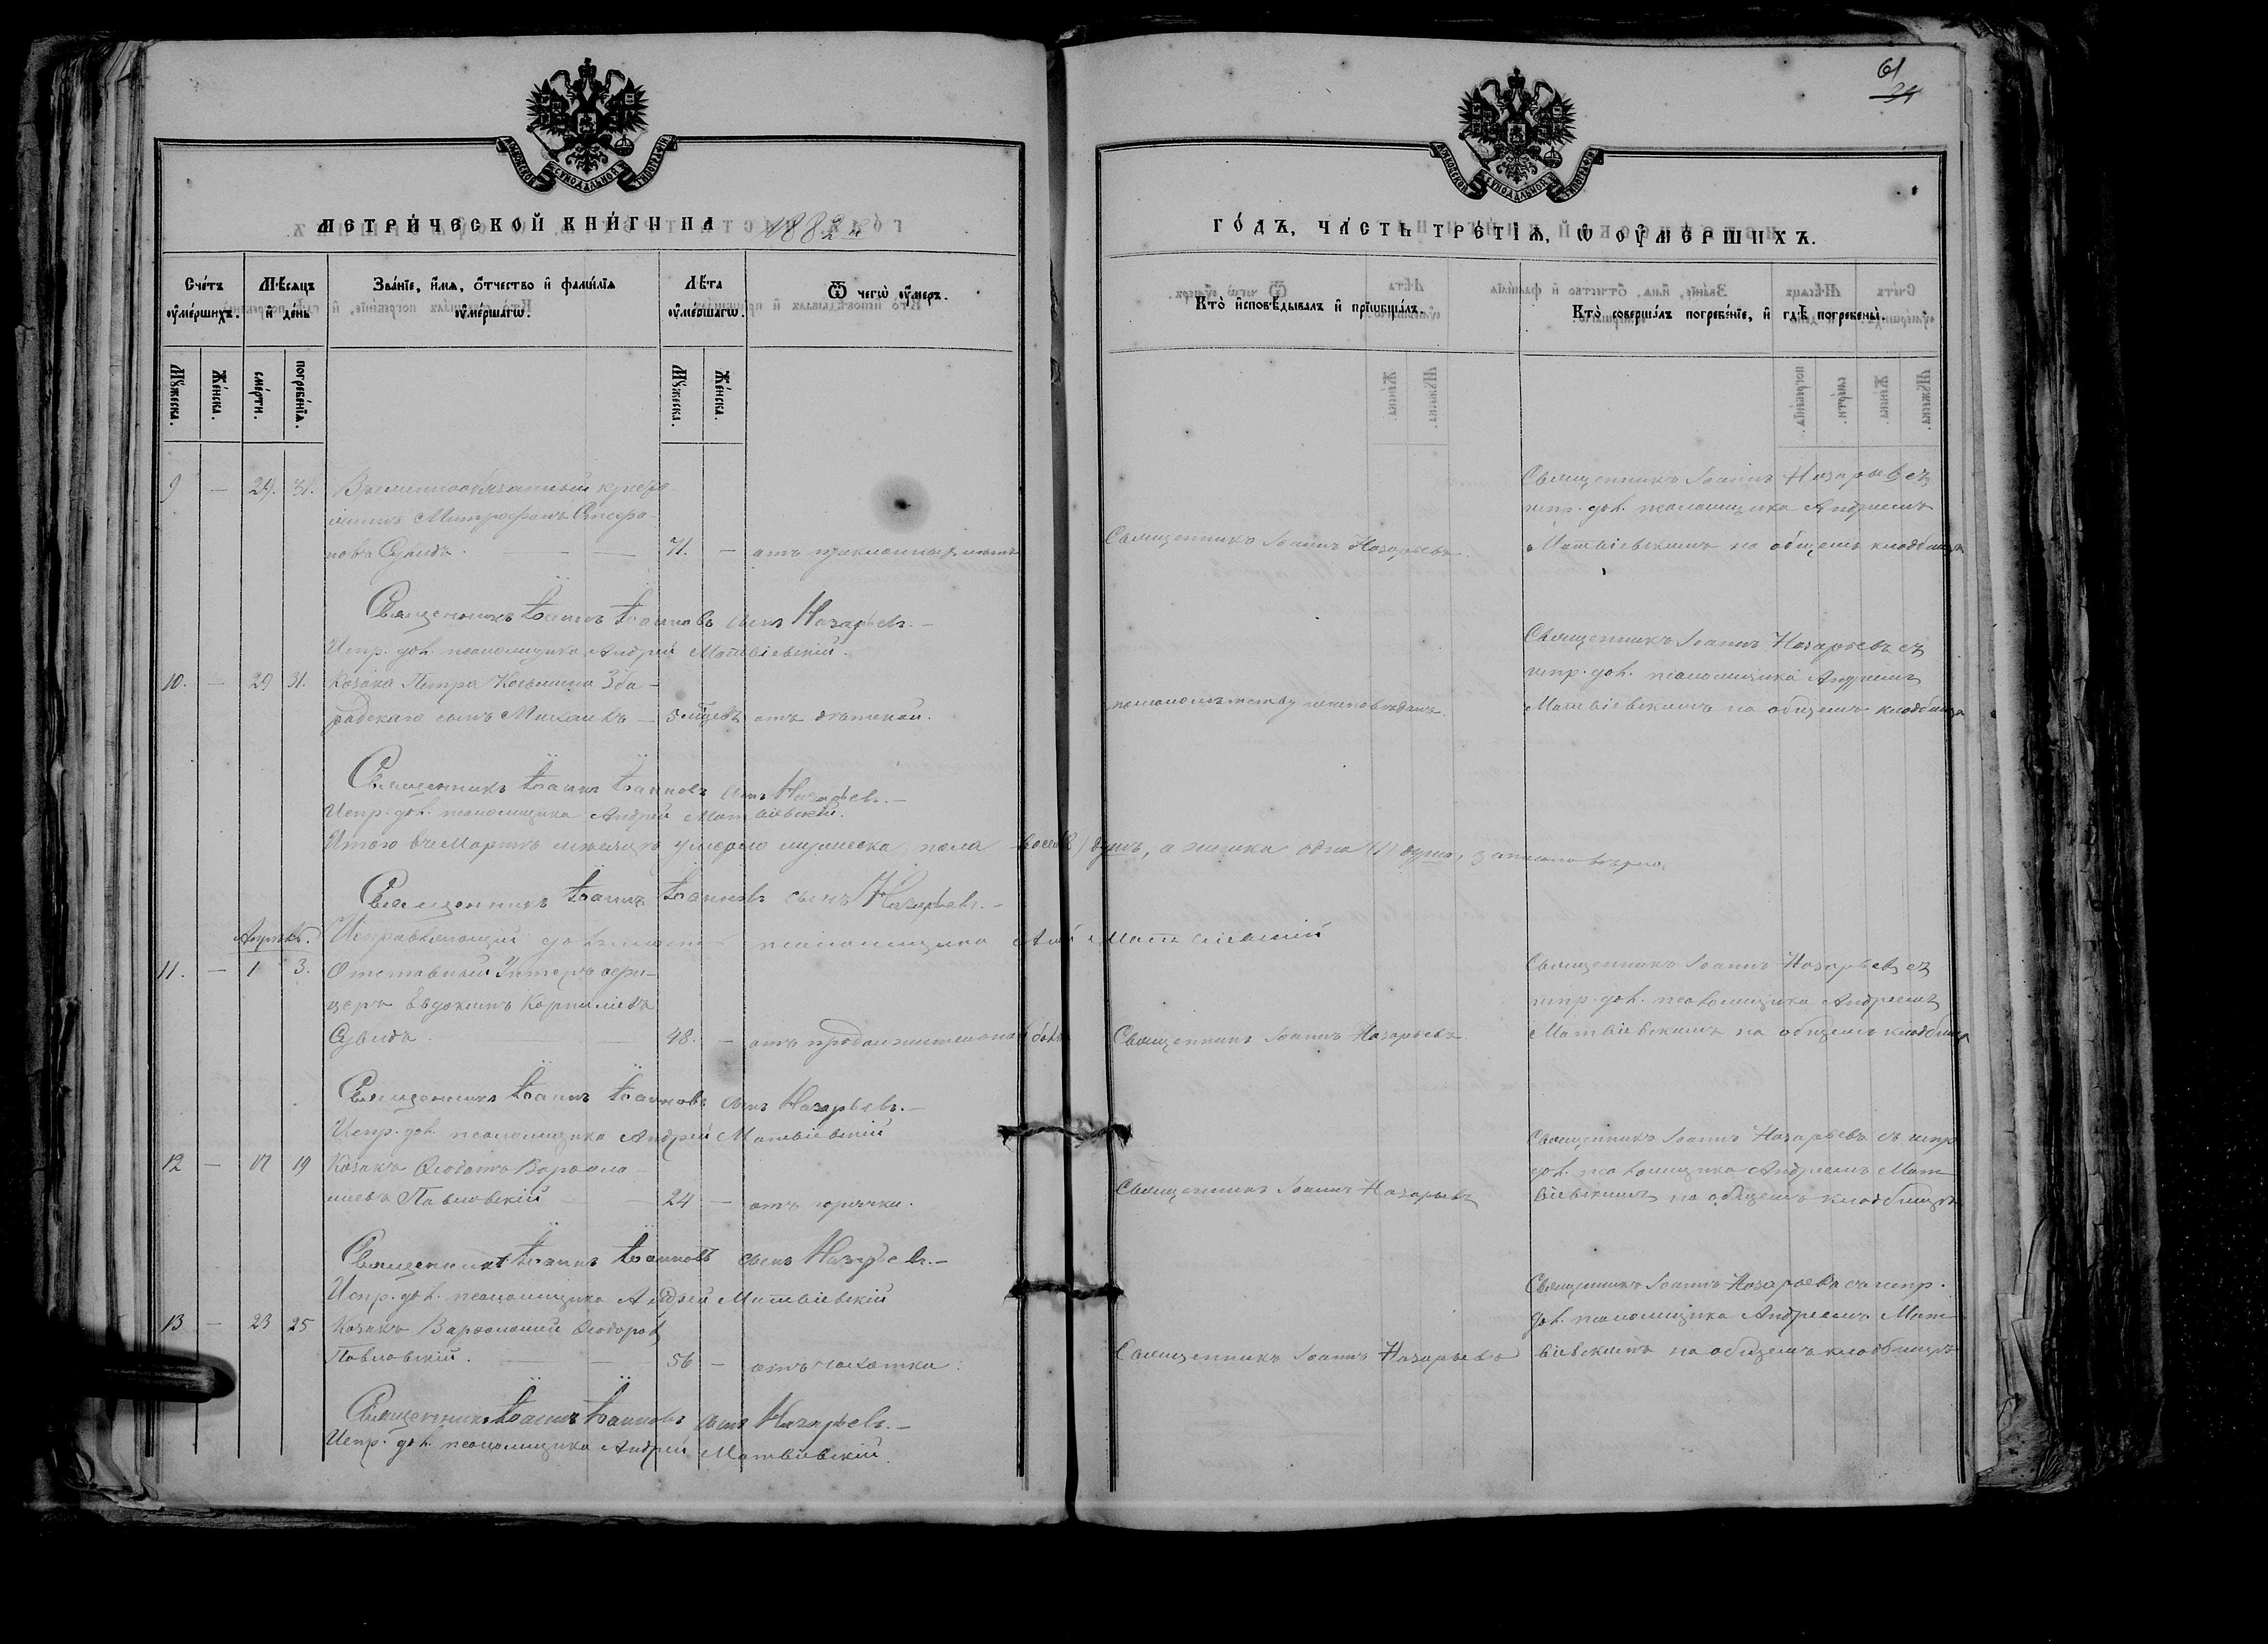 61
МОСКОВСКОЙ СѴНОДАЛЬНОЙ ТИПОГРАФІИ
МОСКОВСКОЙ СѴНОДАЛЬНОЙ ТИПОГРАФІИ
МЕТРИ́ЧЕСКОЙ КНИ́ГИ НА 1882й
ГО́ДЪ, ЧА́СТЬ ТРЕ́ТІѦ, Ѡ ОУ҆МЕРШИХЪ.
Сче́тъ оу҆ме́ршихъ.
Мѣ́сяцъ и҆ де́нь
Зва́нїе, и҆́мѧ, ѻ҆́тчество и҆ фами́лїѧ оу҆ме́ршагѡ.
Лѣ́та оу҆ме́ршагѡ.
Ѿ чегѡ̀ оу҆́меръ.
Кто̀ и҆сповѣ́дывалъ и҆ прїѡбща́лъ.
Кто̀ соверша́лъ погребе́нїе, и҆ гдѣ̀ погребены̀.
Мꙋ́жеска.
Же́нска.
сме́рти.
погребе́нїѧ.
Мꙋ́жеска.
Же́нска.
9 — 29. 31. Временнообязанный кресть-
янинъ Митрофанъ Стефа-
новъ Сувидъ. — 71. —
Священникъ Іоаннъ Назарьевъ.
Священникъ Іоаннъ Назарьевъ съ
испр. дол. псаломщика Андреемъ
Матвіевскимъ на общемъ кладбищѣ
Священникъ Іоаннъ Іоанновъ сынъ Назарьевъ.—
Испр. дол. псаломщика Андрей Матвіевскій.
10. — 29 31. Козака Петра Косьмина Зба-
радскаго сынъ Михаилъ — 5 мѣсяцъ
Священникъ Іоаннъ Назарьевъ съ
испр. дол. псаломщика Андреемъ
Матвіевскимъ на общемъ кладбищѣ
Священникъ Іоаннъ Іоанновъ сынъ Назарьевъ.—
Испр. дол. псаломщика Андрей Матвіевскій.
Итого въ Мартѣ мѣсяцѣ умерло мужеска пола восемь (8) душъ, а женска одна (1) душа, записано вѣрно.
Священникъ Іоаннъ Іоанновъ сынъ Назарьевъ.—
Исправляющій должность псаломщика Анд Матвіевскій
Апрѣль.
11. — 1 3. Отставный Унтеръ офи-
церъ Евдокимъ Корниліевъ
Сувидъ. — 48. — отъ продолжительной бол.
Священникъ Іоаннъ Назарьевъ.
Священникъ Іоаннъ Назарьевъ съ
испр. дол. псаломщика Андреемъ
Матвіевскимъ на общемъ кладбищѣ
Священникъ Іоаннъ Іоанновъ сынъ Назарьевъ.—
Испр. дол. псаломщика Андрей Матвіевскій
12 — 17 19 Козакъ Ѳеодотъ Варѳоло-
міевъ Павловскій — 24 — отъ горячки.
Священникъ Іоаннъ Назарьевъ
Священникъ Іоаннъ Назарьевъ съ испр.
дол. псаломщика Андреемъ Мат-
віевскимъ на общемъ кладбищѣ
Священникъ Іоаннъ Іоанновъ сынъ Назарьевъ.—
Испр. дол. псаломщика Андрей Матвіевскій
13 — 23 25 Козакъ Варѳоломей Ѳеодоровъ
Павловскій. — 56 — отъ чахотки.
Священникъ Іоаннъ Назарьевъ
Священникъ Іоаннъ Назарьевъ съ испр.
дол. псаломщика Андреемъ Мат-
віевскимъ на общемъ кладбищѣ
Священникъ Іоаннъ Іоанновъ сынъ Назарьевъ.—
Испр. дол. псаломщика Андрей Матвіевскій.